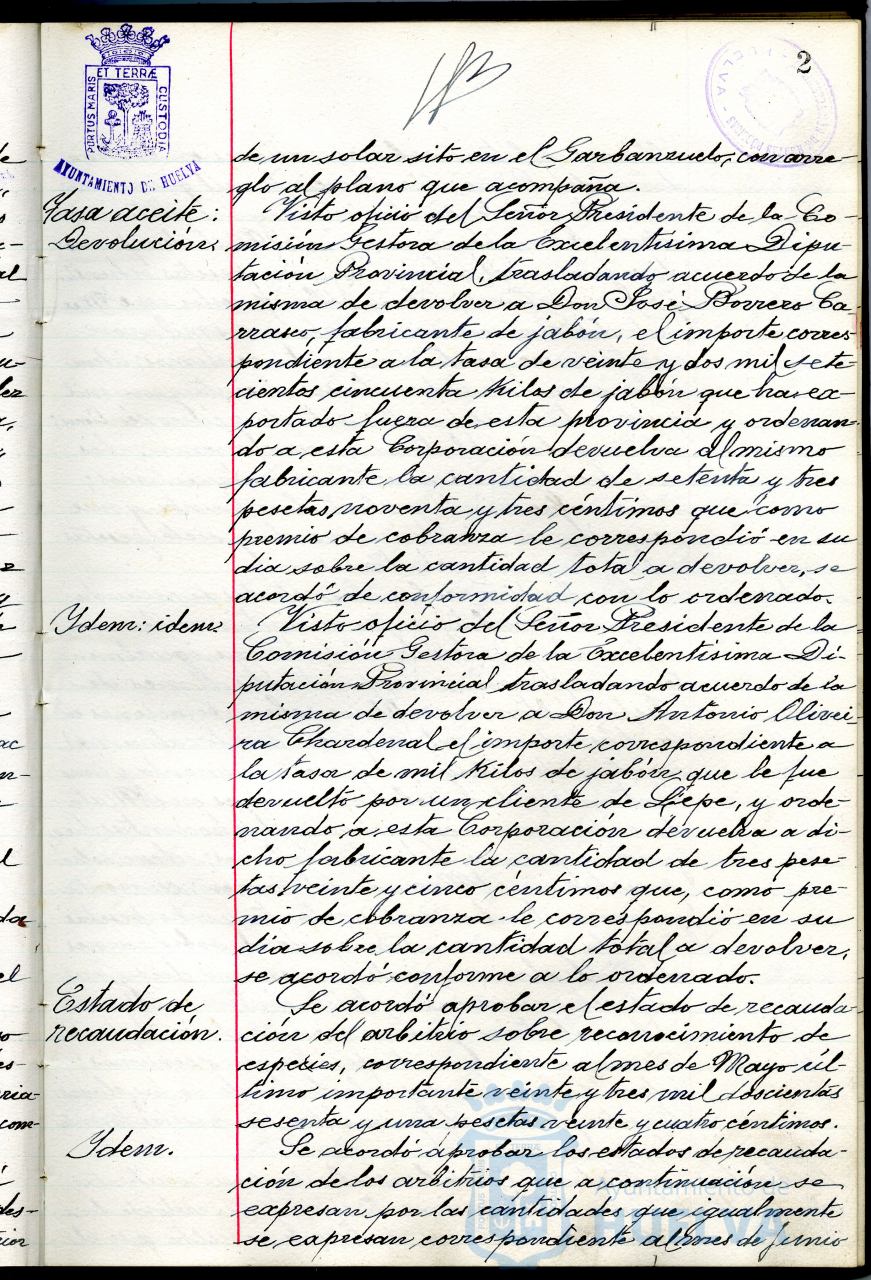 2
PORTUS MARIS
ET TERRÆ
CUSTODIA
AYUNTAMIENTO DE HUELVA
de un solar sito en el Garbanzuelo, con arre-
glo al plano que acompaña.
Tasa aceite:
Devolución.
Visto oficio del Señor Presidente de la Co-
misión Gestora de la Excelentisima Dipu-
tación Provincial, trasladando acuerdo de la
misma de devolver a Don José Borrero Ca-
rrasco, fabricante de jabón, el importe corres-
pondiente a la tasa de veinte y dos mil sete-
cientos cincuenta kilos de jabón que ha ex-
portado fuera de esta provincia y ordenan-
do a esta Corporación devuelva al mismo
fabricante la cantidad de setenta y tres
pesetas noventa y tres céntimos que como
premio de cobranza le correspondió en su
dia sobre la cantidad total a devolver, se
acordó de conformidad con lo ordenado.
Ydem: idem.
Visto oficio del Señor Presidente de la
Comisión Gestora de la Excelentisima Di-
putación Provincial trasladando acuerdo de la
misma de devolver a Don Antonio Olivei-
ra Chardenal el importe correspondiente a
la tasa de mil kilos de jabón que le fue
devuelto por un cliente de Lepe, y orde-
nando a esta Corporación devuelva a di-
cho fabricante la cantidad de tres pese-
tas veinte y cinco céntimos que, como pre-
mio de cobranza le correspondió en su
dia sobre la cantidad total a devolver,
se acordó conforme a lo ordenado.
Estado de
recaudación.
Se acordó aprobar el estado de recauda-
ción del arbitrio sobre reconocimiento de
especies, correspondiente al mes de Mayo úl-
timo importante veinte y tres mil doscientas
sesenta y una pesetas veinte y cuatro céntimos.
Ydem.
Se acordó aprobar los estados de recauda-
ción de los arbitrios que a continuación se
expresan por las cantidades que igualmente
se expresan correspondiente al mes de Junio
Ayuntamiento de
HUELVA